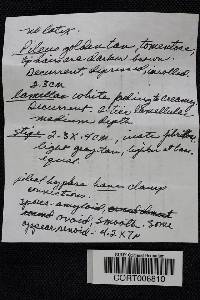 no latex
Pileus golden tan, tomentose,
darker brown.
Decurrent, depressed, inrolled.
2-3 cm
Lamellae white fading to creamy,
Decurrent. 2 tier lamellulae-
medium depth
Stipe 2-3 X .4 cm,
light gray-tan, lighter at base.
equal.
pileal hyphae have clamp
connections.
Spores- amyloid,
ovoid, smooth. Some
appear round- 4-5 X 7 µ
CORT006810